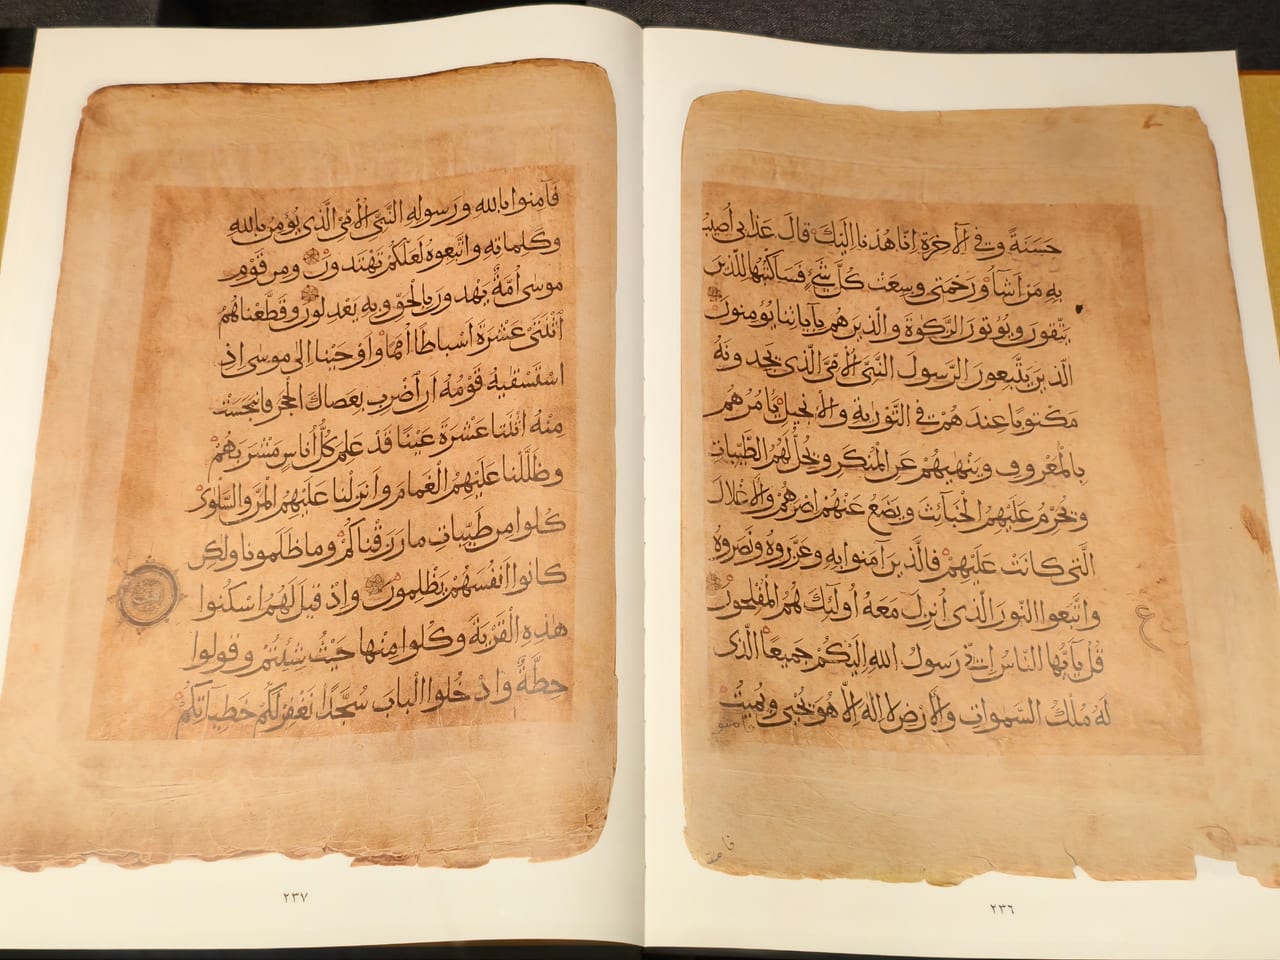 حَسَنَةً وَفِي الْآخِرَةِ إِنَّا هُدْنَا إِلَيْكَ قَالَ عَذَابِي أُصِيبُ
بِهِ مَنْ أَشَآءُ وَرَحْمَتِي وَسِعَتْ كُلَّ شَيْءٍ فَسَأَكْتُبُهَا لِلَّذِينَ
يَتَّقُونَ وَيُؤْتُونَ الزَّكَوٰةَ وَالَّذِينَ هُمْ بِآيَاتِنَا يُؤْمِنُونَ
الَّذِينَ يَتَّبِعُونَ الرَّسُولَ النَّبِيَّ الْأُمِّيَّ الَّذِي يَجِدُونَهُ
مَكْتُوبًا عِنْدَهُمْ فِي التَّوْرَيٰةِ وَالْإِنْجِيلِ يَأْمُرُهُمْ
بِالْمَعْرُوفِ وَيَنْهَيٰهُمْ عَنِ الْمُنْكَرِ وَيُحِلُّ لَهُمُ الطَّيِّبَاتِ
وَيُحَرِّمُ عَلَيْهِمُ الْخَبَآئِثَ وَيَضَعُ عَنْهُمْ إِصْرَهُمْ وَالْأَغْلَالَ
الَّتِي كَانَتْ عَلَيْهِمْ فَالَّذِينَ آمَنُوا بِهِ وَعَزَّرُوهُ وَنَصَرُوهُ
وَاتَّبَعُوا النُّورَ الَّذِي أُنْزِلَ مَعَهُ أُولَٰئِكَ هُمُ الْمُفْلِحُونَ
قُلْ يَآ أَيُّهَا النَّاسُ إِنِّي رَسُولُ اللهِ إِلَيْكُمْ جَمِيعًا الَّذِي
لَهُ مُلْكُ السَّمَوَاتِ وَالْأَرْضِ لَا إِلَهَ إِلَّا هُوَ يُحْيِي وَيُمِيتُ
فامنوا
ع
٢٣٦
فَآمِنُوا بِاللهِ وَرَسُولِهِ النَّبِيِّ الْأُمِّيِّ الَّذِي يُؤْمِنُ بِاللهِ
وَكَلِمَاتِهِ وَاتَّبِعُوهُ لَعَلَّكُمْ تَهْتَدُونَ وَمِنْ قَوْمِ
مُوسَى أُمَّةٌ يَهْدُونَ بِالْحَقِّ وَبِهِ يَعْدِلُونَ وَقَطَّعْنَاهُمُ
اثْنَتَيْ عَشْرَةَ أَسْبَاطًا أُمَمًا وَأَوْحَيْنَا إِلَى مُوسَى إِذِ
اسْتَسْقَيٰهُ قَوْمُهُ أَنِ اضْرِبْ بِعَصَاكَ الْحَجَرَ فَانْبَجَسَتْ
مِنْهُ اثْنَتَا عَشْرَةَ عَيْنًا قَدْ عَلِمَ كُلُّ أُنَاسٍ مَشْرَبَهُمْ
وَظَلَّلْنَا عَلَيْهِمُ الْغَمَامَ وَأَنْزَلْنَا عَلَيْهِمُ الْمَنَّ وَالسَّلْوَىٰ
كُلُوا مِنْ طَيِّبَاتِ مَا رَزَقْنَاكُمْ وَمَا ظَلَمُونَا وَلَكِنْ
كَانُوا أَنْفُسَهُمْ يَظْلِمُونَ وَإِذْ قِيلَ لَهُمُ اسْكُنُوا
هَٰذِهِ الْقَرْيَةَ وَكُلُوا مِنْهَا حَيْثُ شِئْتُمْ وَقُولُوا
حِطَّةٌ وَادْخُلُوا الْبَابَ سُجَّدًا نَغْفِرْ لَكُمْ خَطِيئَاتِكُمْ
٢٣٧